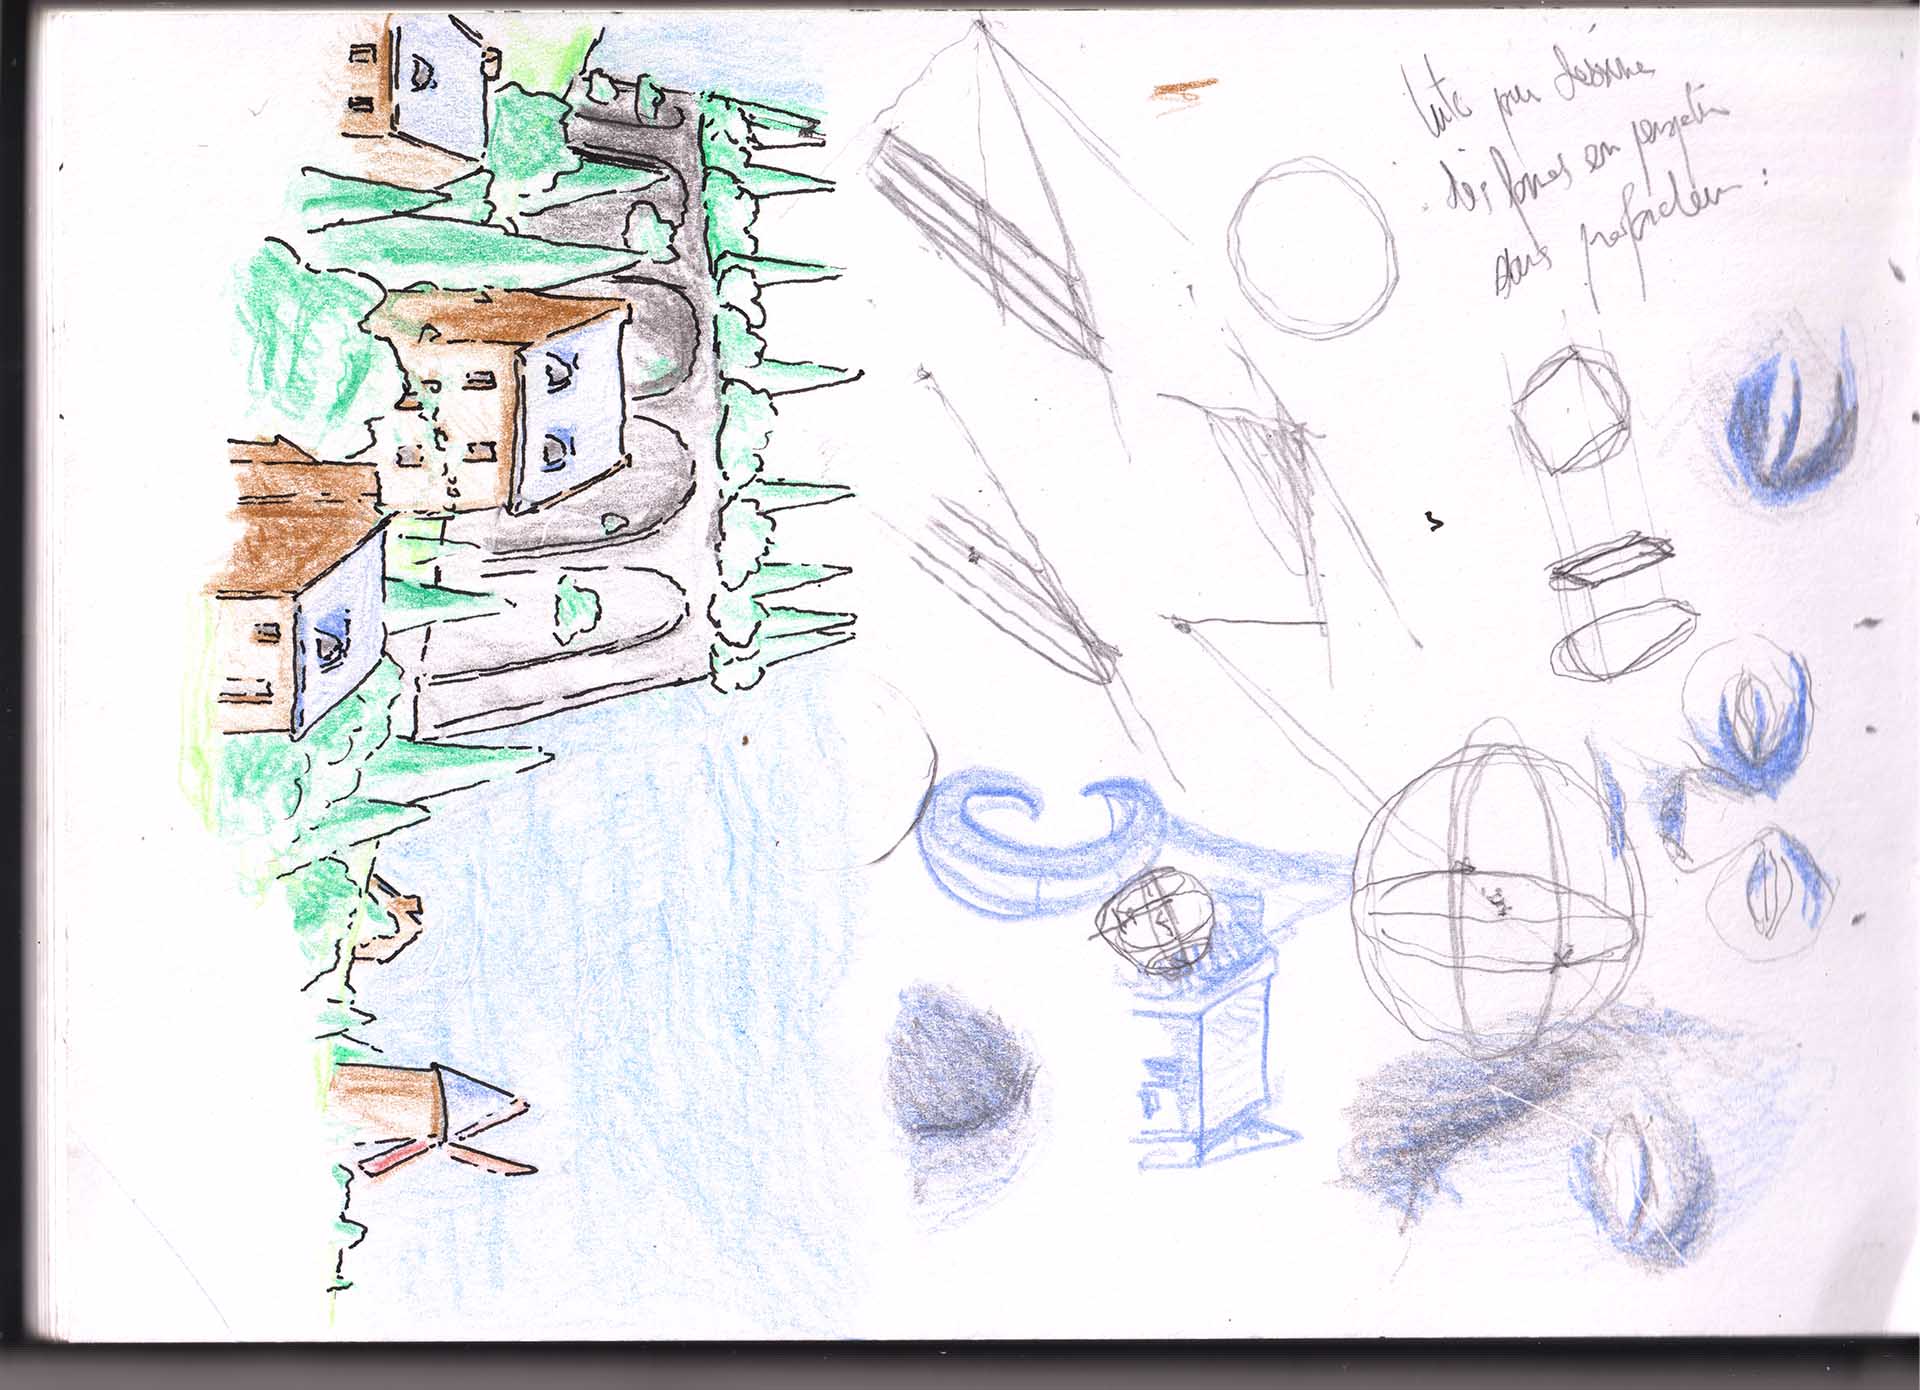 tuto pour dessiner
des formes en perspective
sans profondeur :